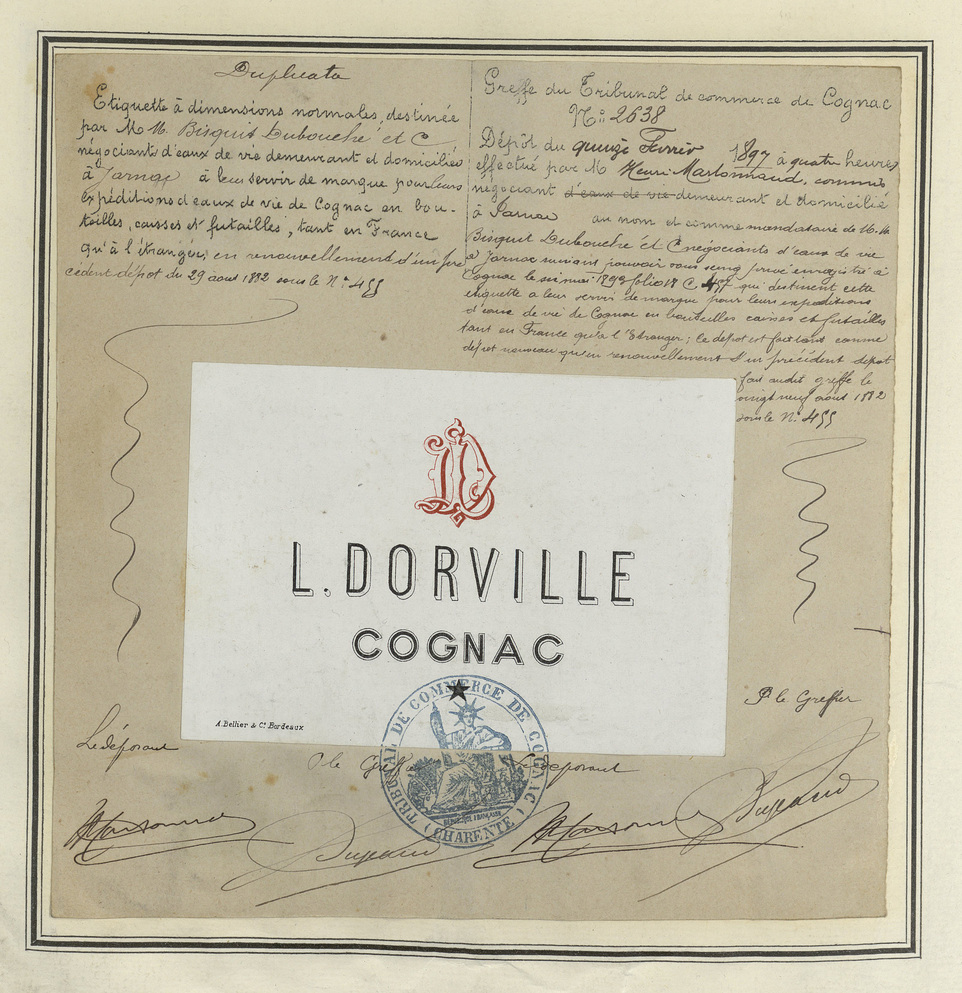 Duplicata
Etiquette à dimensions normales, destinée
par M M. Bisquit Dubouché et C
négociants d'eaux de vie demeurant et domiciliés
à Jarnac à leur servir de marque pour leurs
expéditions d'eaux de vie de Cognac en bou-
teilles, caisses et futailles, tant en France
qu'à l'étranger, en renouvellement d'un pré
cédent dépot du 29 aout 1882 sous le N° 455
Greffe du Tribunal de commerce de Cognac
N° 2638
Dépôt du quinze Février 1897 à quatre heures
effectué par M Henri Marsonnaud, commis
négociant d'eaux de vie demeurant et domicilié
à Jarnac au nom et comme mandataire de M. M.
Bisquit Dubouché et C négociants d'eaux de vie
à Jarnac suivant pouvoir sous seing privé enregistré à
Cognac le six mai 1893 folio 18 C. 477 qui destinent cette
etiquette a leur servir de marque pour leurs expeditions
d'eaux de vie de Cognac en bouteilles caisses et futailles
tant en France qu'à l'Etranger; le dépot est fait tant comme
dépot nouveau qu'en renouvellement d'un précédent dépot
fait audit greffe le
vingt neuf aout 1882
sous le N° 455
L. DORVILLE
COGNAC
A. Bellier & Cie Bordeaux
TRIBUNAL DE COMMERCE DE COGNAC
(CHARENTE)
P le Greffier
Le déposant
P le Greffier
Le déposant
Marsonnaud
Dupaud
Marsonnaud
Dupaud